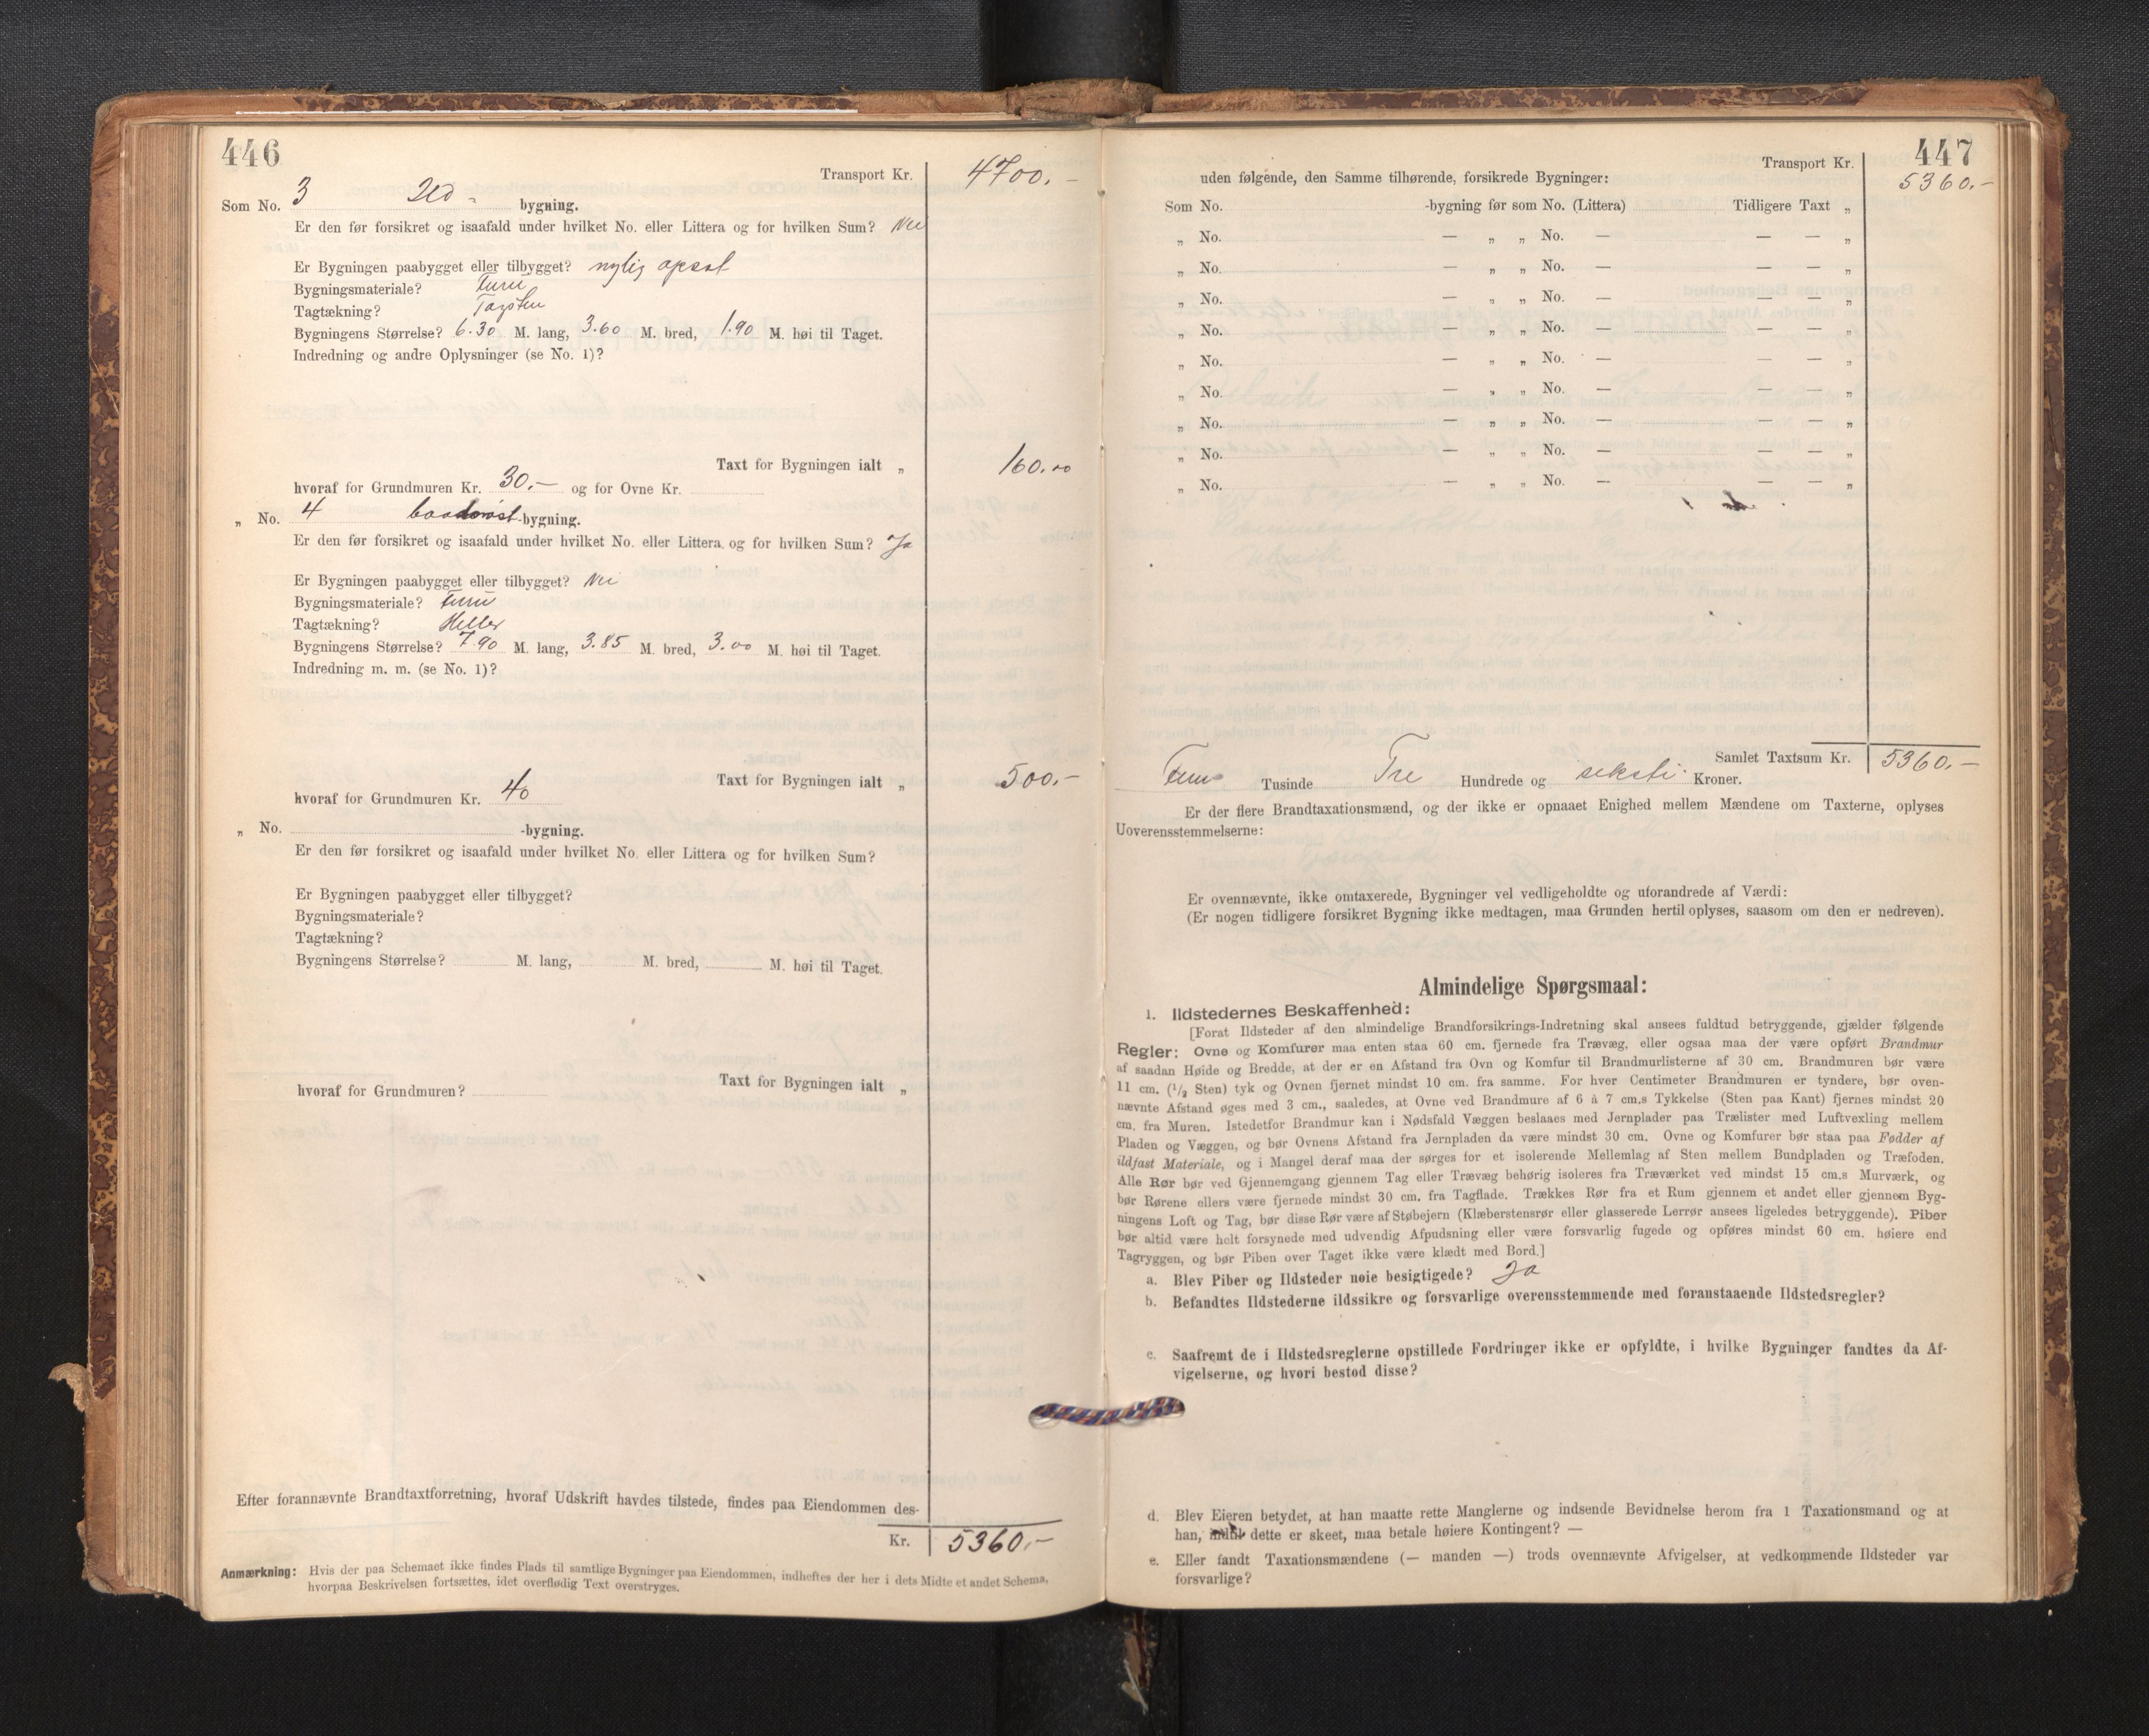 446
Transport Kr. 4700.-
Som No. 3 Ved- bygning.
Er den før forsikret og isaafald under hvilket No. eller Littera og for hvilken Sum? Nei
Er Bygningen paabygget eller tilbygget? nylig opsat
Bygningsmateriale? Furu
Tagtækning? Tagsten
Bygningens Størrelse? 6.30 M. lang, 3.60 M. bred, 1.90 M. høi til Taget.
Indredning og andre Oplysninger (se No. 1)?
Taxt for Bygningen ialt „ 160.00
hvoraf for Grundmuren Kr. 30.- og for Ovne Kr.
„ No. 4 baadnøst-bygning.
Er den før forsikret og isaafald under hvilket No. eller Littera og for hvilken Sum? Ja
Er Bygningen paabygget eller tilbygget? Nei
Bygningsmateriale? Furu
Tagtækning? Heller
Bygningens Størrelse? 7.90 M. lang, 3.85 M. bred, 3.00 M. høi til Taget.
Indredning m. m. (se No. 1)?
Taxt for Bygningen ialt „ 500.-
hvoraf for Grundmuren Kr. 40
„ No. -bygning.
Er den før forsikret og isaafald under hvilket No. eller Littera og for hvilken Sum?
Er Bygningen paabygget eller tilbygget?
Bygningsmateriale?
Tagtækning?
Bygningens Størrelse? M. lang, M. bred, M. høi til Taget.
Taxt for Bygningen ialt „
hvoraf for Grundmuren?
Efter forannævnte Brandtaxtforretning, hvoraf Udskrift havdes tilstede, findes paa Eiendommen des-
Kr. 5360.-
Anmærkning: Hvis der paa Schemaet ikke findes Plads til samtlige Bygninger paa Eiendommen, indheftes der her i dets Midte et andet Schema,
hvorpaa Beskrivelsen fortsættes, idet overflødig Text overstryges.
447
Transport Kr. 5360.-
uden følgende, den Samme tilhørende, forsikrede Bygninger:
Som No. -bygning før som No. (Littera) Tidligere Taxt „
„ No. — „ „ No. — — — „
„ No. — „ „ No. — — — „
„ No. — „ „ No. — — — „
„ No. — „ „ No. — — — „
„ No. — „ „ No. — — — „
„ No. — „ „ No. — — — „
„ No. — „ „ No. — — — „
„ No. — „ „ No. — — — „
„ No. — „ „ No. — — — „
Samlet Taxtsum Kr. 5360.-
Fem Tusinde Tre Hundrede og seksti Kroner.
Er der flere Brandtaxationsmænd, og der ikke er opnaaet Enighed mellem Mændene om Taxterne, oplyses
Uoverensstemmelserne:
Er ovennævnte, ikke omtaxerede, Bygninger vel vedligeholdte og uforandrede af Værdi:
(Er nogen tidligere forsikret Bygning ikke medtagen, maa Grunden hertil oplyses, saasom om den er nedreven).
Almindelige Spørgsmaal:
1. Ildstedernes Beskaffenhed:
[Forat Ildsteder af den almindelige Brandforsikrings-Indretning skal ansees fuldtud betryggende, gjælder følgende
Regler: Ovne og Komfurer maa enten staa 60 cm. fjernede fra Trævæg, eller ogsaa maa der være opført Brandmur
af saadan Høide og Bredde, at der er en Afstand fra Ovn og Komfur til Brandmurlisterne af 30 cm. Brandmuren bør være
11 cm. (1/2 Sten) tyk og Ovnen fjernet mindst 10 cm. fra samme. For hver Centimeter Brandmuren er tyndere, bør oven-
nævnte Afstand øges med 3 cm., saaledes, at Ovne ved Brandmure af 6 à 7 cm.s Tykkelse (Sten paa Kant) fjernes mindst 20
cm. fra Muren. Istedetfor Brandmur kan i Nødsfald Væggen beslaaes med Jernplader paa Trælister med Luftvexling mellem
Pladen og Væggen, og bør Ovnens Afstand fra Jernpladen da være mindst 30 cm. Ovne og Komfurer bør staa paa Fødder af
ildfast Materiale, og i Mangel deraf maa der sørges for et isolerende Mellemlag af Sten mellem Bundpladen og Træfoden.
Alle Rør bør ved Gjennemgang gjennem Tag eller Trævæg behørig isoleres fra Træværket ved mindst 15 cm.s Murværk, og
bør Rørene ellers være fjernede mindst 30 cm. fra Tagflade. Trækkes Rør fra et Rum gjennem et andet eller gjennem Byg-
ningens Loft og Tag, bør disse Rør være af Støbejern (Klæberstensrør eller glasserede Lerrør ansees ligeledes betryggende). Piber
bør altid være helt forsynede med udvendig Afpudsning eller være forsvarlig fugede og opføres mindst 60 cm. høiere end
Tagryggen, og bør Piben over Taget ikke være klædt med Bord.]
a. Blev Piber og Ildsteder nøie besigtigede? Ja
b. Befandtes Ildstederne ildssikre og forsvarlige overensstemmende med foranstaaende Ildstedsregler?
c. Saafremt de i Ildstedsreglerne opstillede Fordringer ikke er opfyldte, i hvilke Bygninger fandtes da Af-
vigelserne, og hvori bestod disse?
d. Blev Eieren betydet, at han maatte rette Manglerne og indsende Bevidnelse herom fra 1 Taxationsmand og at
han, indtil dette er skeet, maa betale høiere Kontingent? —
e. Eller fandt Taxationsmændene (— manden —) trods ovennævnte Afvigelser, at vedkommende Ildsteder var
forsvarlige?